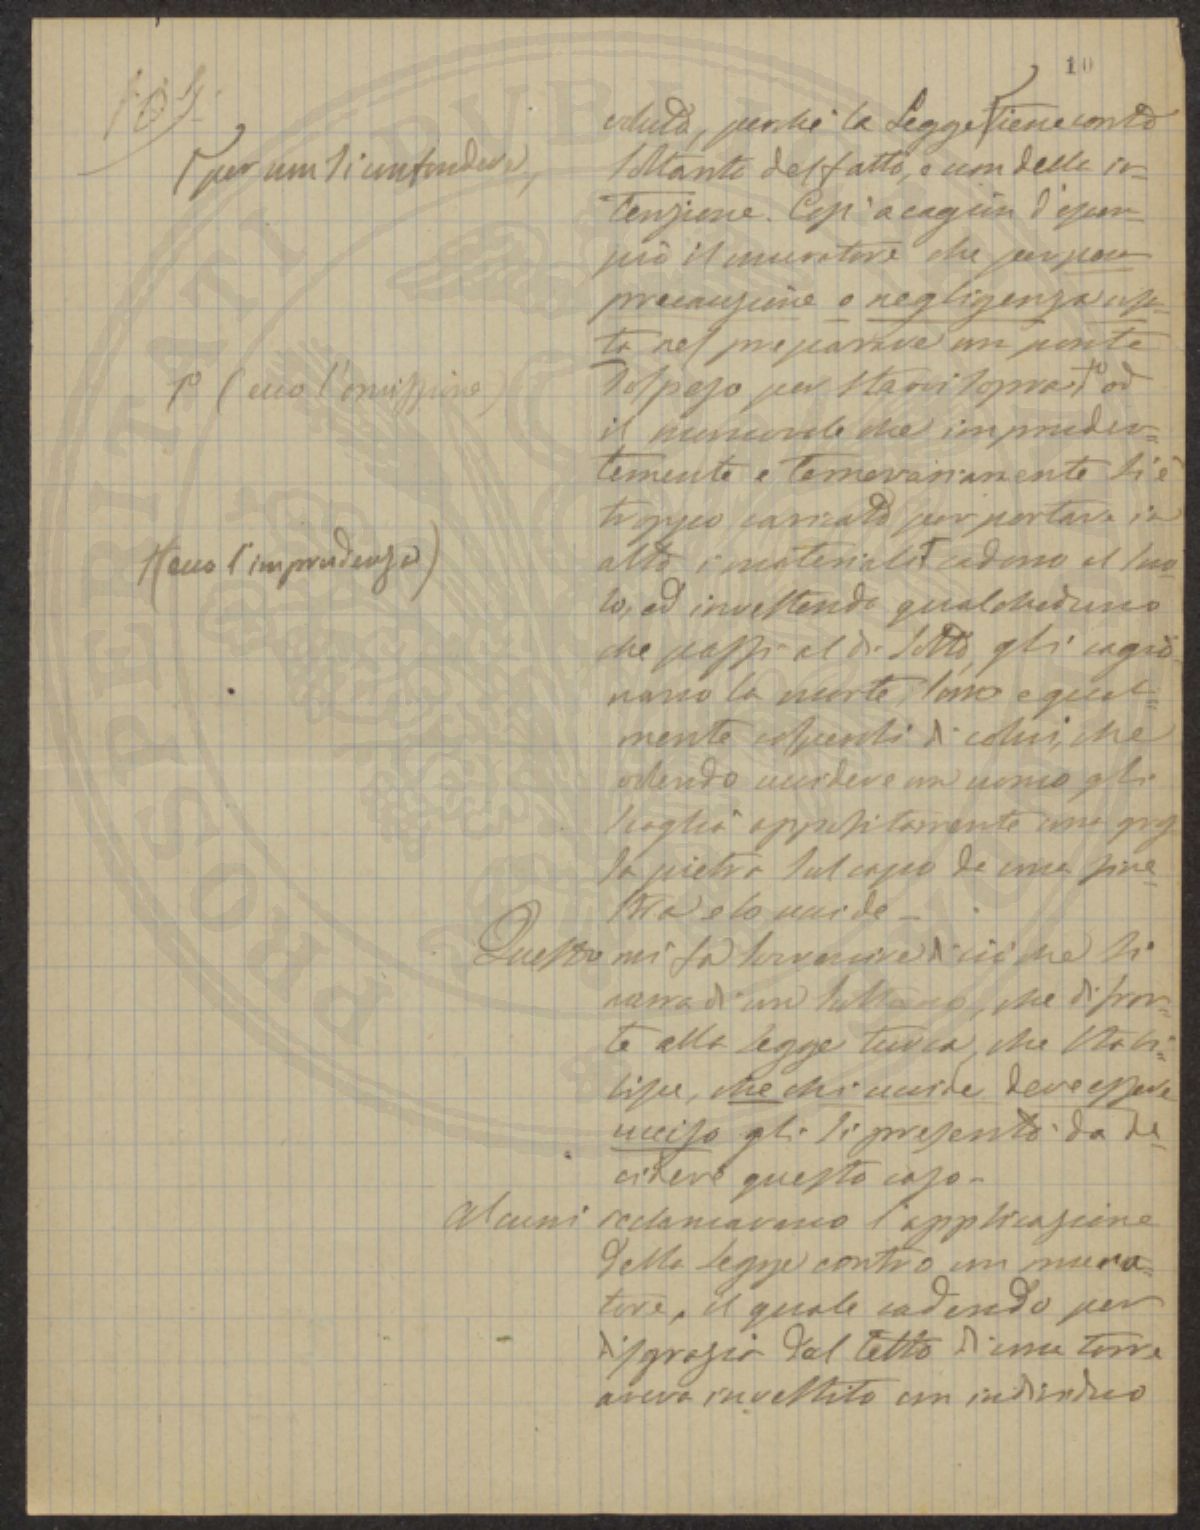 10
voluto, perché la Legge tiene conto
per non si confondere,
soltanto del fatto, e non della in-
tenzione. Così a cagion d'esem-
piò il muratore che per poca
precauzione o negligenza usa-
ta nel preparare un ponte
sospeso per starvi sopra od
1º (ecco l'omissione)
il manovale che impruden-
temente e temerariamente si è
troppo caricato per portare in
alto i materiali cadono al suo-
(ecco l'imprudenza)
lo, ed investendo qualcheduno
che passi al di sotto, gli cagio-
nano la morte, sono egual-
mente colpevoli di colui, che
volendo uccidere un uomo gli
scaglia appositamente una gros
sa pietra sul capo da una fine-
stra e lo uccide -
Questo mi fa sovvenire di ciò che si
narra di un Sultano, che di fron-
te alla legge turca, che stabi-
lisce, che chi uccide deve essere
ucciso gli si presentò da de-
cidere questo caso -
Alcuni reclamavano l'applicazione
della legge contro un mura-
tore, il quale cadendo per
disgrazia dal tetto di una torre
aveva investito un individuo